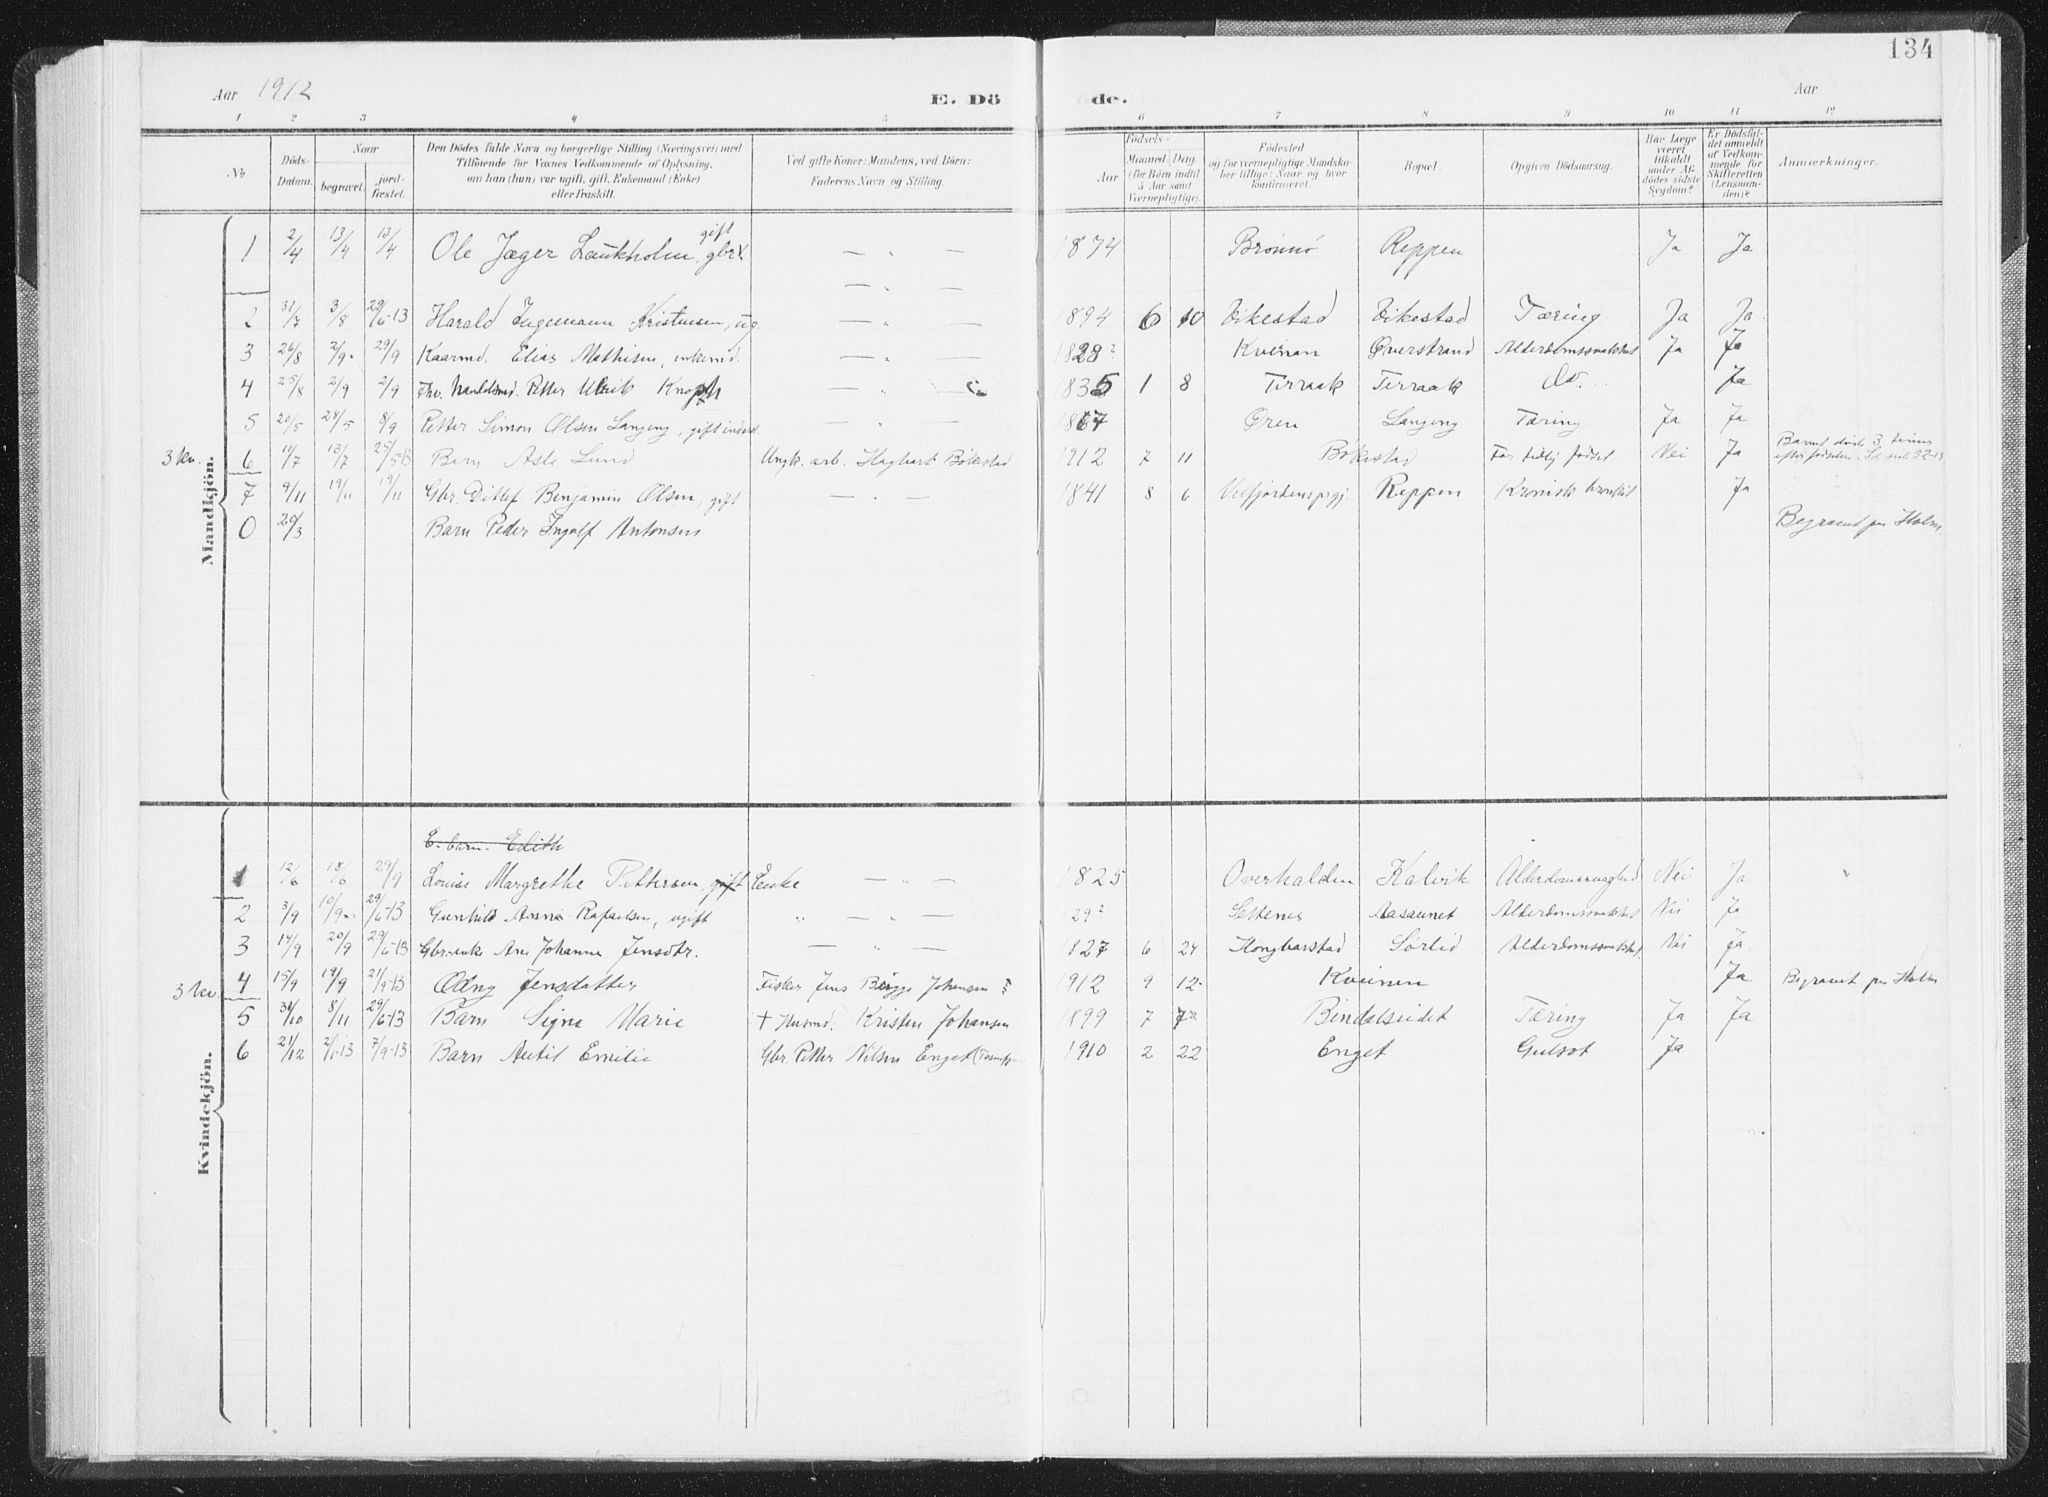 134
Aar 1912 E. Dö de. Aar
1 2 3 4 5 6 7 8 9 10 11 12
No
Döds-Datum.
Naar
begravet.
jord-fæstet.
Den Dödes fulde Navn og borgerlige Stilling (Næringsvei) med
Tilföiende for Voxnes Vedkommende af Oplysning,
om han (hun) var ugift, gift, Enkemand (Enke)
eller fraskilt.
Ved gifte Koner: Mandens, ved Börn:
Faderens Navn og Stilling.
Födsels-
Aar
Maaned. Dag.
(for Börn indtil
5 Aar samt
Værnepligtige).
Födested
og for værnepligtige Mandska-
ber tillige: Naar og hvor
konfirmeret.
Bopæl.
Opgiven Dödsaarsag.
Har Læge
været
tilkaldt
under Af-
dödes sidste
Sygdom?
Er Dödsfal-
det anmeldt
af Vedkom-
mende for
Skifteretten
(Lensman-
den)?
Anmærkninger.
Mandkjön.
1 2/4 13/4 13/4 Ole Jæger Laukholm, gbr. gift — " — 1874 Brønnø Reppen Ja Ja
— " —
2 31/7 3/8 29/6-13 Harald Ingemann Kristensen, ug. — " — 1894 6 10 Vikestad Vikestad Tæring Ja Ja
3 26/8 2/9 29/9 Kaarmd. Elias Mathisen, enkemd. — " — 1828? Kveinan Øverstrand Alderdomssvakhet Ja Ja
4 25/8 2/9 2/9 Fhv. handelsmd. Petter Ulrik Knoph — " — 1835 1 8 Terraak Terraak Do. Ja
5 20/5 28/5 8/9 Petter Simon Olsen Langeng, gift — " — 1867 Øren Langeng Tæring Ja Ja
3 kv. 6 11/7 13/7 25/5-13 Barn Asle Lund Ungk. arb. Hagbart Bökestad 1912 7 11 Bökestad For tidlig födset Nei Ja Barnet døde 3 timer
efter fødselen.
7 9/11 19/11 19/11 Gbr. Ditlef Benjamin Olsen, gift — " — 1841 8 6 Velfjordens prgj. Reppen Kronisk bronkit Ja
0 20/3 Barn Peder Ingolf Antonsen Begravet paa Holm.
Kvindekjön.
E. barn. Edith
1 12/6 18/6 29/9 Louise Margrethe Pettersen, gift Enke — " — 1825 Overhalden Kalvik Alderdomssvaghed Nei Ja "
2 3/9 10/9 29/6-13 Gunhild Anna Rafaelsen, ugift " — " — 29? Settenes Aasaunet Alderdomssvakhet Nei Ja
3 14/9 20/9 29/6-13 Gbr.enke Ane Johanna Jensdtr. — " — 1827 6 24 Hongbarstad Sørlid Alderdomssvakhet Nei Ja.
3 kv. 4 15/9 19/9 21/9-13 Odny Jensdatter Fisker Jens Johansen 1912 9 12 Kveinan Ja Begravet paa Holm
5 31/10 8/11 29/6-13 Barn Signe Marie † Husmd. Kristen Johansen 1899 7 7 Bindalseidet Tæring Ja Ja
6 21/12 2/1-13 7/9-13 Barn Astil Emilie Gbr. Petter Nilsen Enget 1910 2 22 Enget Gulsot Ja